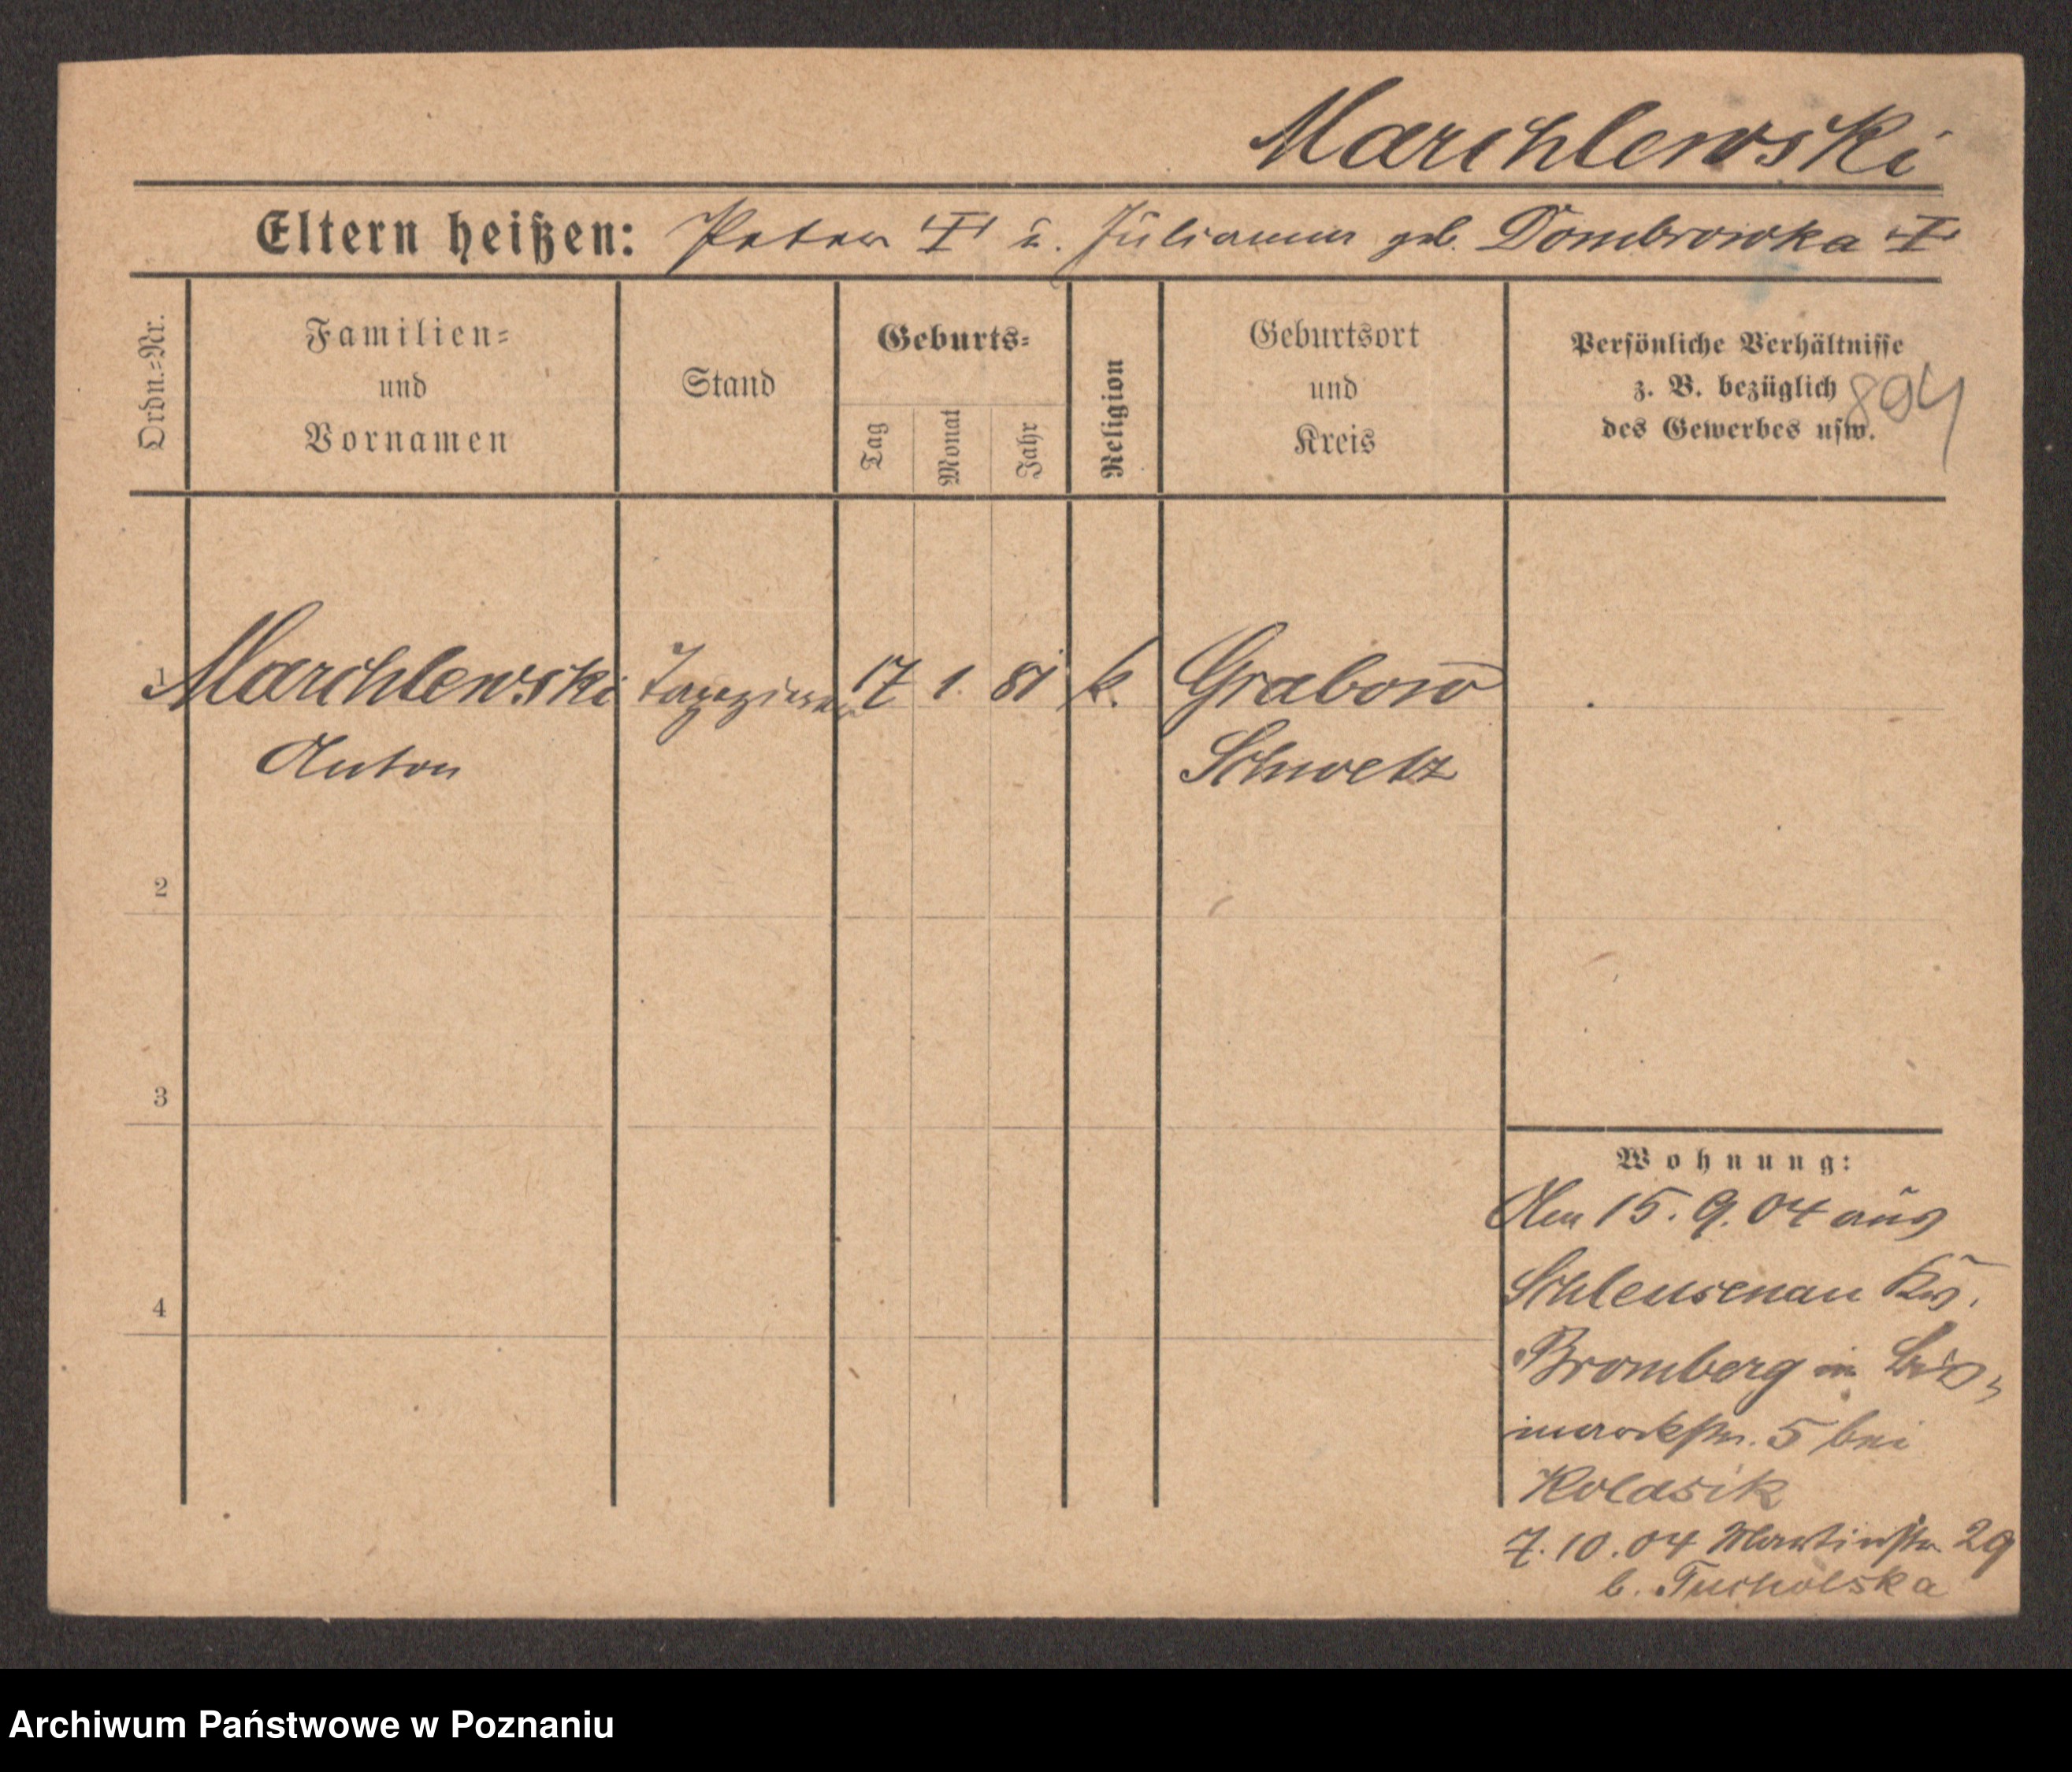 Marchlewski
Eltern heißen: Peter † u. Julianna geb. Dombrowska †
Ordn.=Nr.
Familien=
und
Vornamen
Stand
Geburts=
Tag
Monat
Jahr
Religion
Geburtsort
und
Kreis
Persönliche Verhältnisse
z. B. bezüglich
des Gewerbes usw.
894
1 Marchlewski Tapezierer 17 1. 81 k. Grabow
Anton Schwetz
2
3
4
Wohnung:
Am 15. 9. 04 aus
Schleusenau Krs.
Bromberg in Bis=
marckstr. 5 bei
Koldasik
7. 10. 04 Martinstr. 29
b. Tucholska
Archiwum Państwowe w Poznaniu